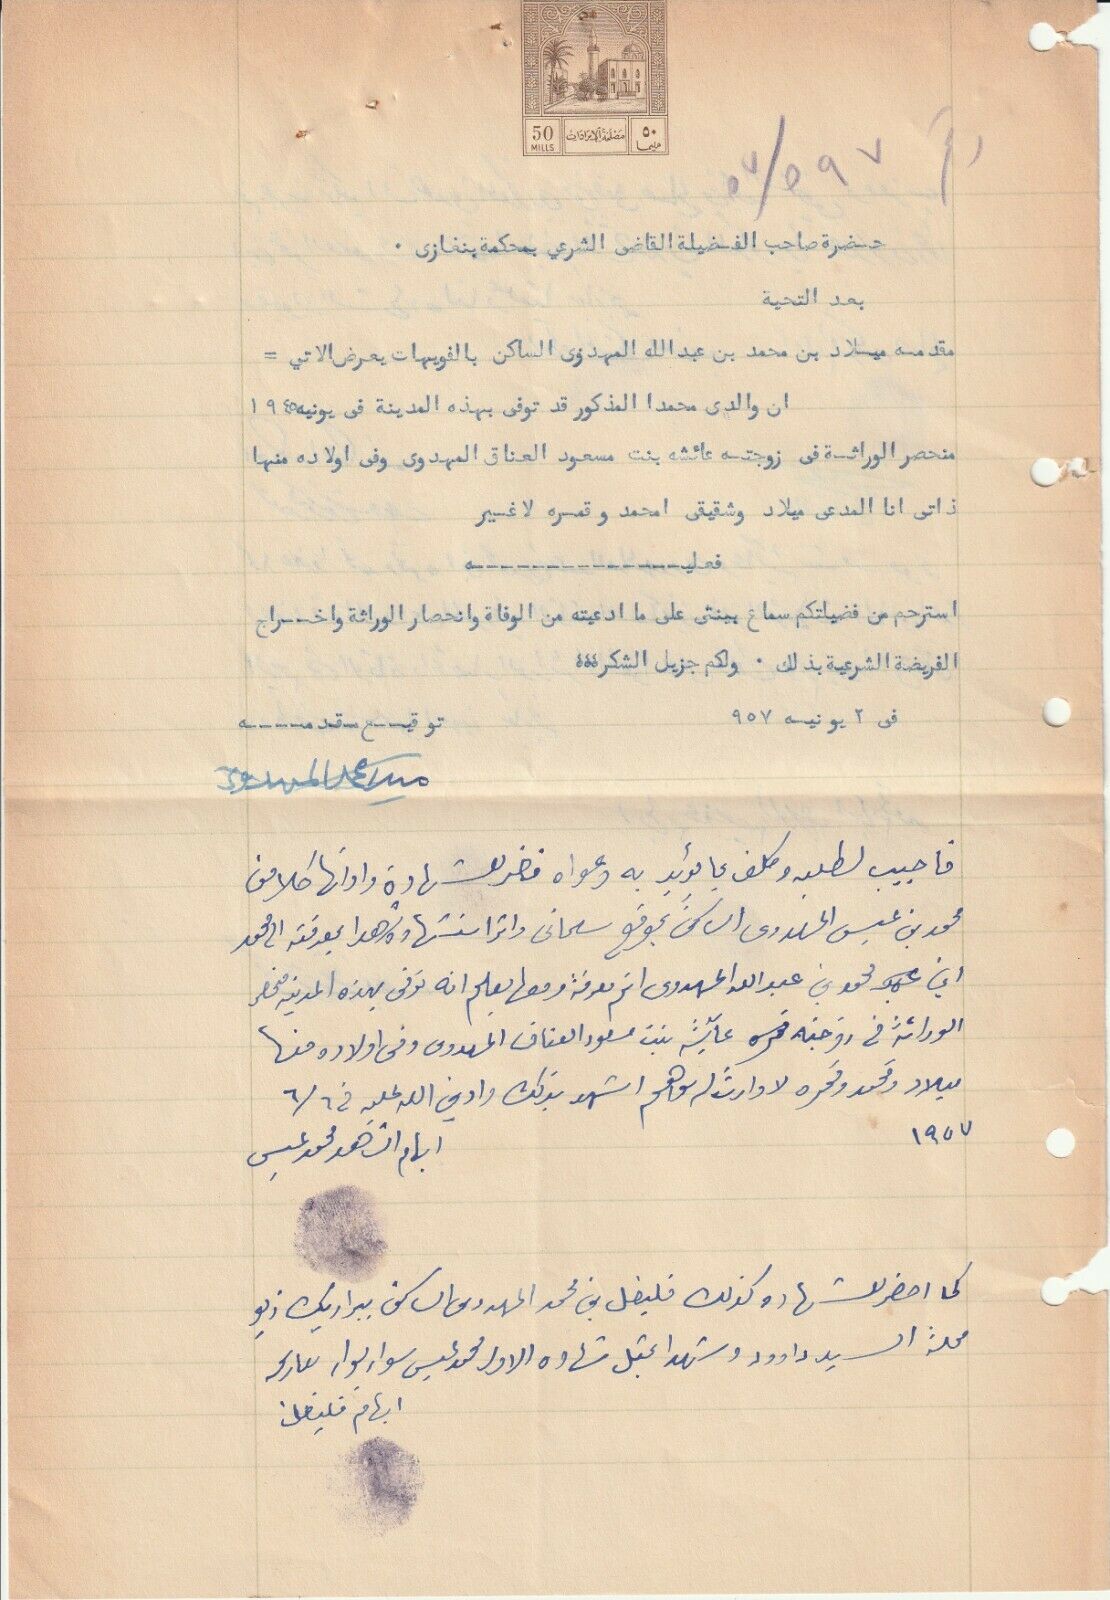 50 MILLS
مصلحة الايرادات
٥٠ مليما
٥٩٧/٥٧
حضرة صاحب الفضيلة القاضى الشرعي بمحكمة بنغازى ٠
بعد التحية
مقدمه ميلاد بن محمد بن عبدالله المهدوى الساكن بالفويهات يعرض الاتي =
ان والدى محمدا المذكور قد توفى بهذه المدينة فى يونيه ١٩٤٥
منحصر الوراثة فى زوجته عائشه بنت مسعود العناق المهدوى وفى اولاده منها
ذاتى انا المدعى ميلاد وشقيقى امحمد وقمره لا غير
فعليه
استرحم من فضيلتكم سماع بينتى على ما ادعيته من الوفاة وانحصار الوراثة واخراج
الفريضة الشرعية بذلك ٠ ولكم جزيل الشكر
فى ٢ يونيه ٩٥٧ توقيع مقدمه
ميلاد محمد المهدوى
فاجيب لطلبه وكلف بما يؤيد به دعواه فاحضر للشهادة واداتها كلا من
محمد بن عيسى المهدوى الساكن بموقع سلمانى واثر استشهاده شهد بمعرفته الى محمد
ابن محمد بن عبدالله المهدوى اتم معرفة ومعها يعلم انه توفى بهذه المدينة منحصر
الوراثة فى زوجته عائشة بنت مسعود العناق المهدوى وفى اولاده منها
ميلاد ومحمد وقمره لا وارث له سواهم اشهد بذلك وادين الله عليه فى ٦/٦
١٩٥٧
ابهام الشاهد محمد عيسى
كما احضر للشهاده كذلك فليفل بن محمد المهدوى الساكن ببراريك
محلة السيد داوود وشهد بمثل شهادة الاول محمد عيسى سواء بسواء
ابهام فليفل